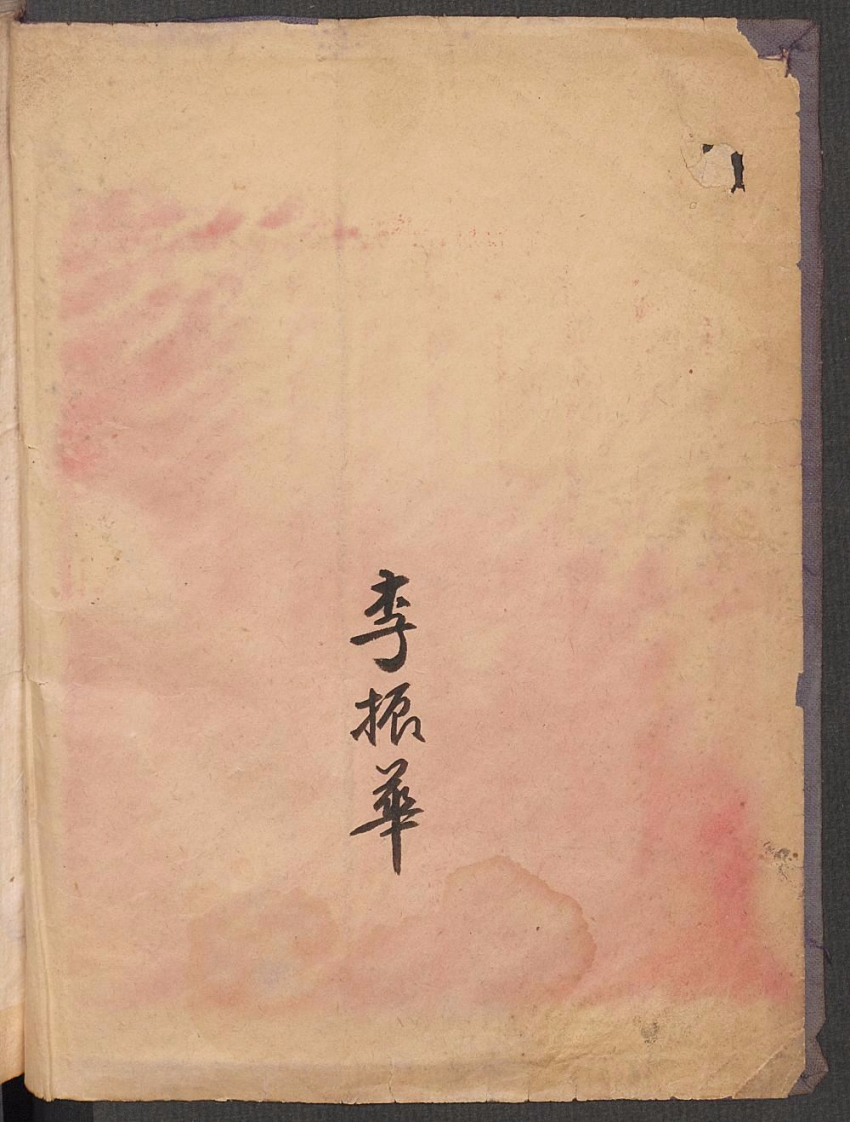 李振華